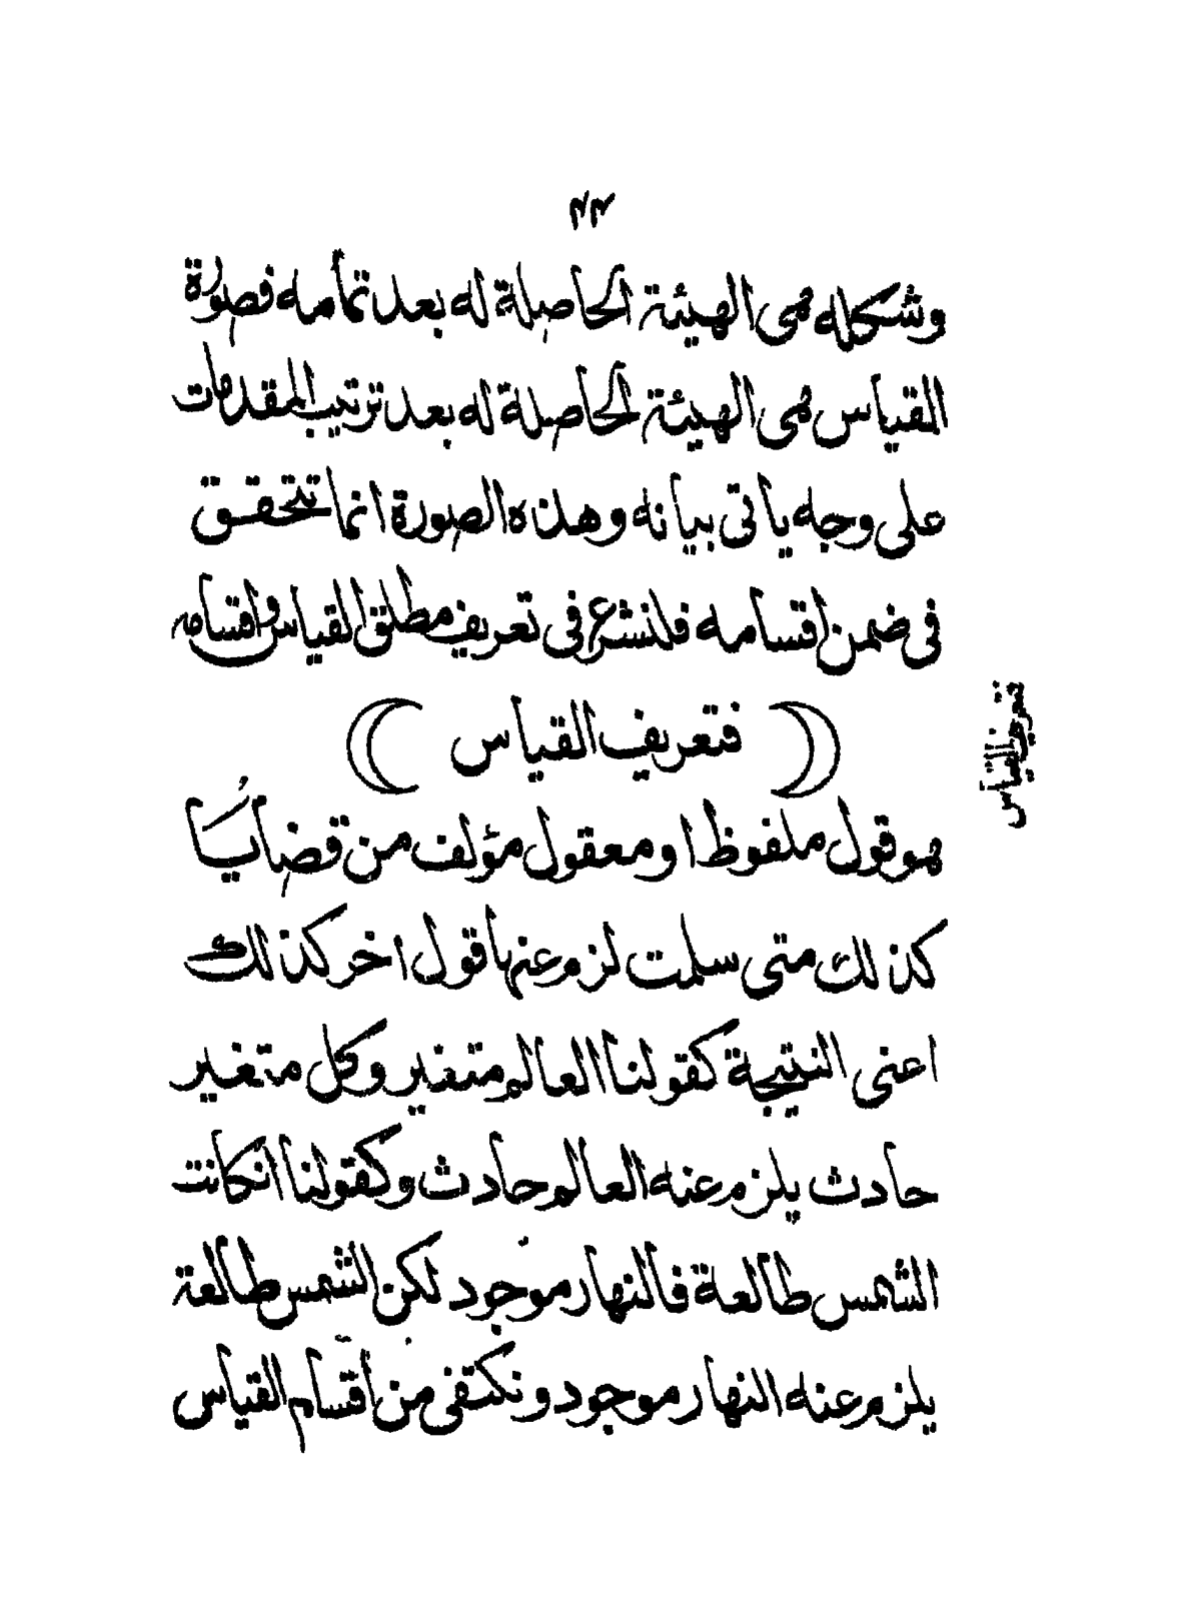 ٢٣
وشكله هى الهيئة الحاصلة له بعد تمأمه فصورة
القياس هى الهيئة الحاصلة له بعد ترتيب المقدمات
على وجه يأتى بيانه وهذه الصورة انما تتحقق
فى ضمن اقسامه فلنشرع فى تعريف مطلق القياس واقسامه
( فتعريف القياس )
تعريف القياس
هو قول ملفوظ او معقول مؤلف من قضايا
كذلك متى سلمت لزم عنها قول اخر كذلك
اعنى النتيجة كقولنا العالم متغير وكل متغير
حادث يلزم عنه العالم حادث وكقولنا انكانت
الشمس طالعة فالنهار موجود لكن الشمس طالعة
يلزم عنه النهار موجود ونكتفى من أقسام القياس